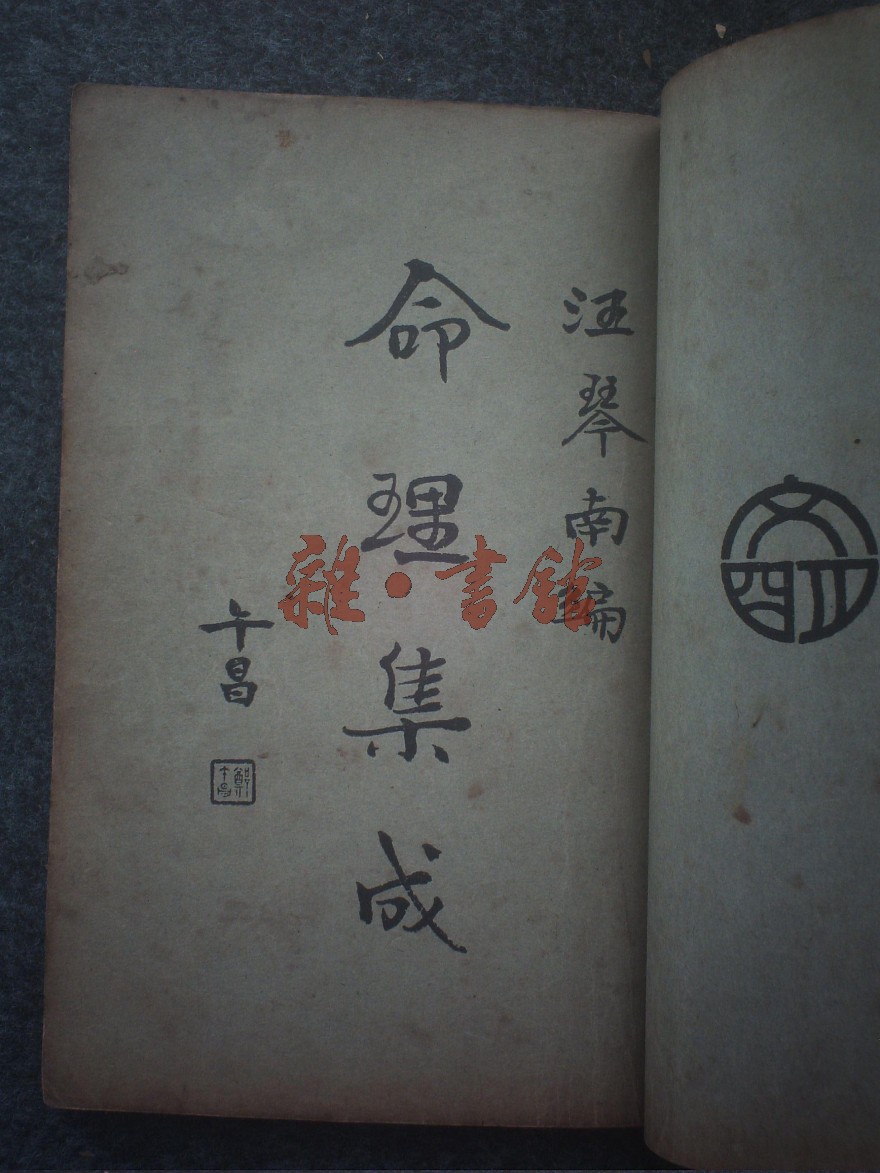 汪琴南編
命理集成
午昌
鄭午昌
雜·書館